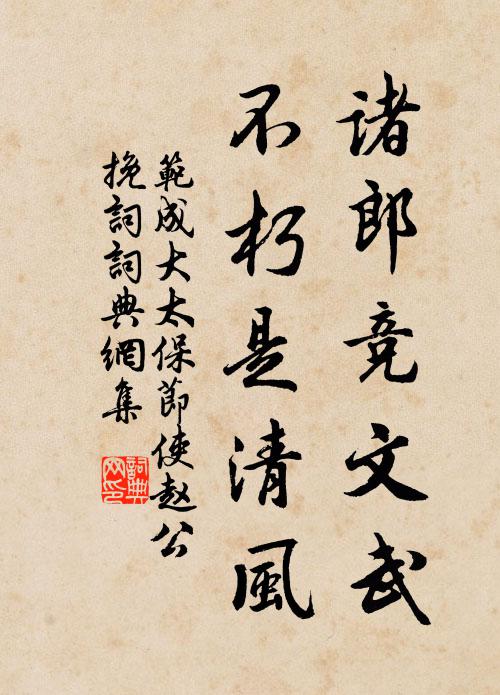 諸郎竞文武
不朽是清風
範成大太保節使赵公
挽詞詞典網集
詞典
网印